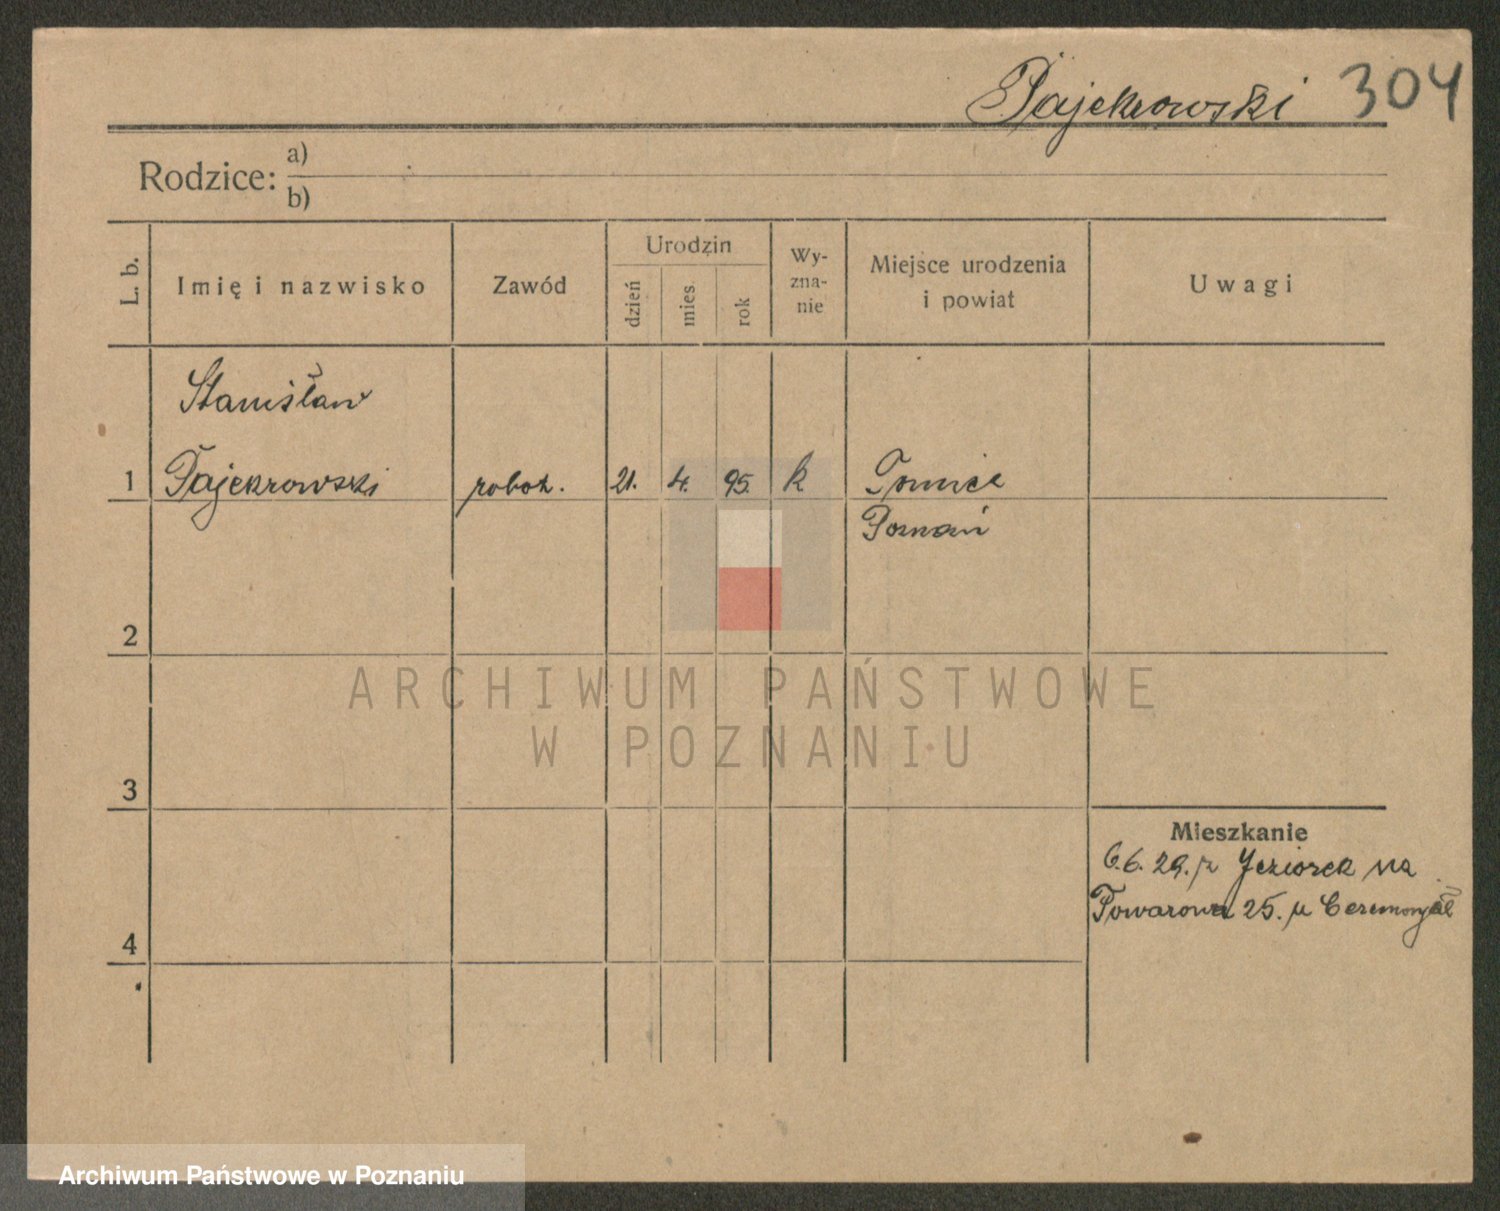 Pajekrowski 304
Rodzice: a)
b)
L. b.
Imię i nazwisko
Zawód
Urodzin
dzień
mies
rok
Wy-
zna-
nie
Miejsce urodzenia
i powiat
Uwagi
Stanisław
1 Pajekrowski robot. 21. 4. 95. k
Poznań
2
3
4
Mieszkanie
6.6.29. Jeziorek na
Towarowa 25.
ARCHIWUM PAŃSTWOWE
W POZNANIU
Archiwum Państwowe w Poznaniu